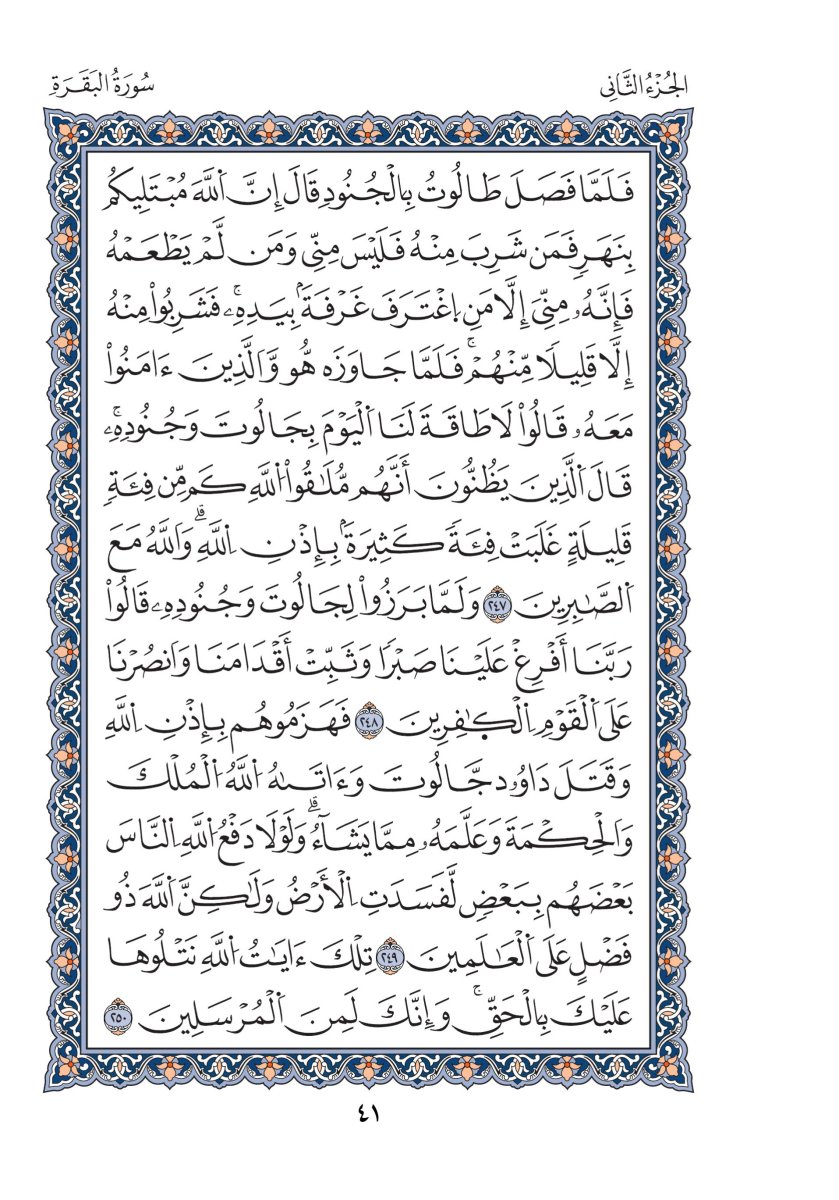 الجُزْءُ الثَّانِي
سُورَةُ البَقَرَةِ
فَلَمَّا فَصَلَ طَالُوتُ بِالْجُنُودِ قَالَ إِنَّ اَللَّهَ مُبْتَلِيكُم
بِنَهَرٖ فَمَن شَرِبَ مِنْهُ فَلَيْسَ مِنِّي وَمَن لَّمْ يَطْعَمْهُ
فَإِنَّهُۥ مِنِّيَ إِلَّا مَنِ اِغْتَرَفَ غَرْفَةَۢ بِيَدِهِۦۚ فَشَرِبُواْ مِنْهُ
إِلَّا قَلِيلٗا مِّنْهُمْۚ فَلَمَّا جَاوَزَه هُّو وَّالَّذِينَ ءَامَنُواْ
مَعَهُۥ قَالُواْ لَا طَاقَةَ لَنَا اَلْيَوْمَ بِجَالُوتَ وَجُنُودِهِۦۚ
قَالَ اَلَّذِينَ يَظُنُّونَ أَنَّهُم مُّلَٰقُواْ اُللَّهِ كَم مِّن فِئَةٖ
قَلِيلَةٍ غَلَبَتْ فِئَةٗ كَثِيرَةَۢ بِإِذْنِ اِللَّهِۗ وَاَللَّهُ مَعَ
اَلصَّٰبِرِينَ ٢٤٧ وَلَمَّا بَرَزُواْ لِجَالُوتَ وَجُنُودِهِۦ قَالُواْ
رَبَّنَا أَفْرِغْ عَلَيْنَا صَبْرٗا وَثَبِّتْ أَقْدَامَنَا وَانصُرْنَا
عَلَى اَلْقَوْمِ اِلْكٰ۪فِرِينَ ٢٤٨ فَهَزَمُوهُم بِإِذْنِ اِللَّهِ
وَقَتَلَ دَاوُۥد جَّالُوتَ وَءَاتَىٰهُ اُللَّهُ اُلْمُلْكَ
وَاَلْحِكْمَةَ وَعَلَّمَهُۥ مِمَّا يَشَآءُۗ وَلَوْلَا دَفْعُ اُللَّهِ اِلنَّاسَ
بَعْضَهُم بِبَعْضٖ لَّفَسَدَتِ اِلْأَرْضُ وَلَٰكِنَّ اَللَّهَ ذُو
فَضْلٍ عَلَى اَلْعَٰلَمِينَ ٢٤٩ تِلْكَ ءَايَٰتُ اُللَّهِ نَتْلُوهَا
عَلَيْكَ بِالْحَقِّۚ وَإِنَّكَ لَمِنَ اَلْمُرْسَلِينَ ٢٥٠
٤١